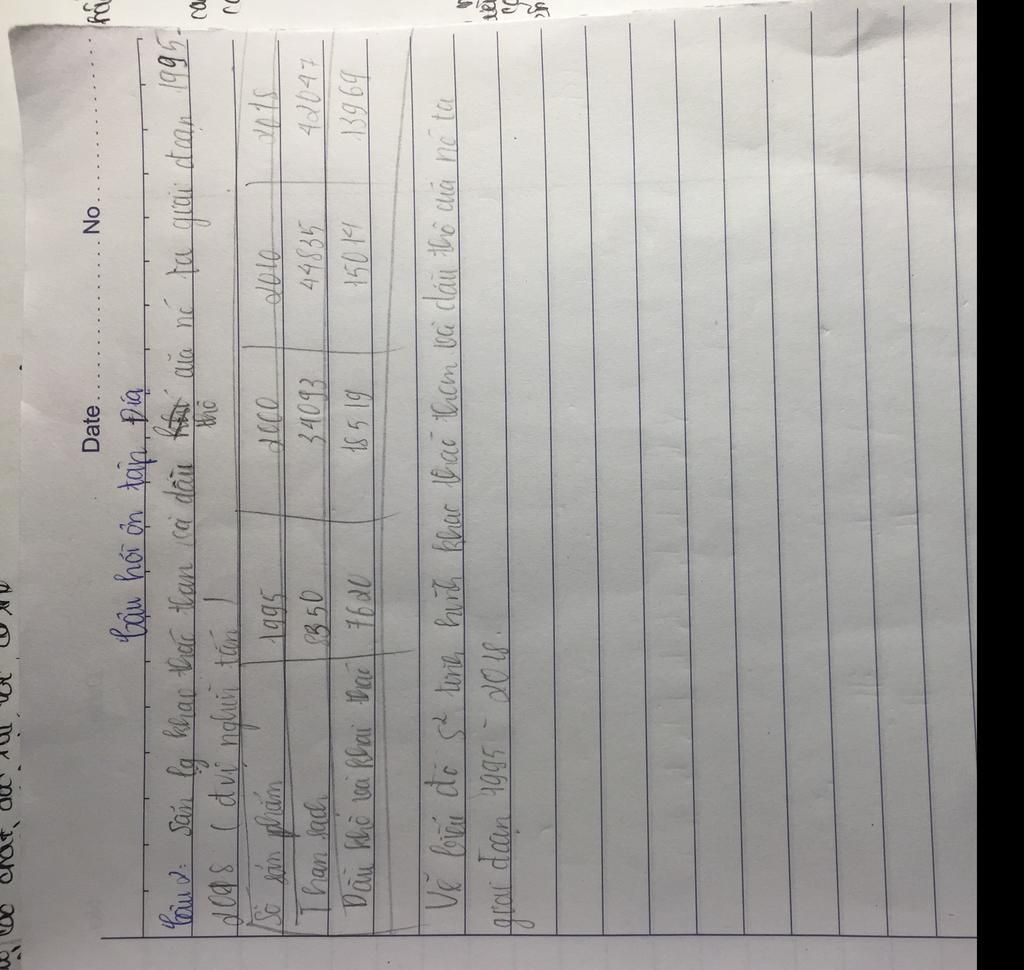 Date ........... No ...........
Câu hỏi ôn tập Địa
Câu 2: Sản lg khai thác than và dầu thô của nc ta giai đoạn 1995-
2018 (đvị nghìn tấn)
Số sản phẩm 1995 2000 2010 2018
Than sạch 8350 34093 44835 42047
Dầu thô và khai thác 7620 18519 15014 13969
Vẽ biểu đồ s² tình hình khai thác them và dầu thô của nc ta
giai đoạn 1995 - 2018.